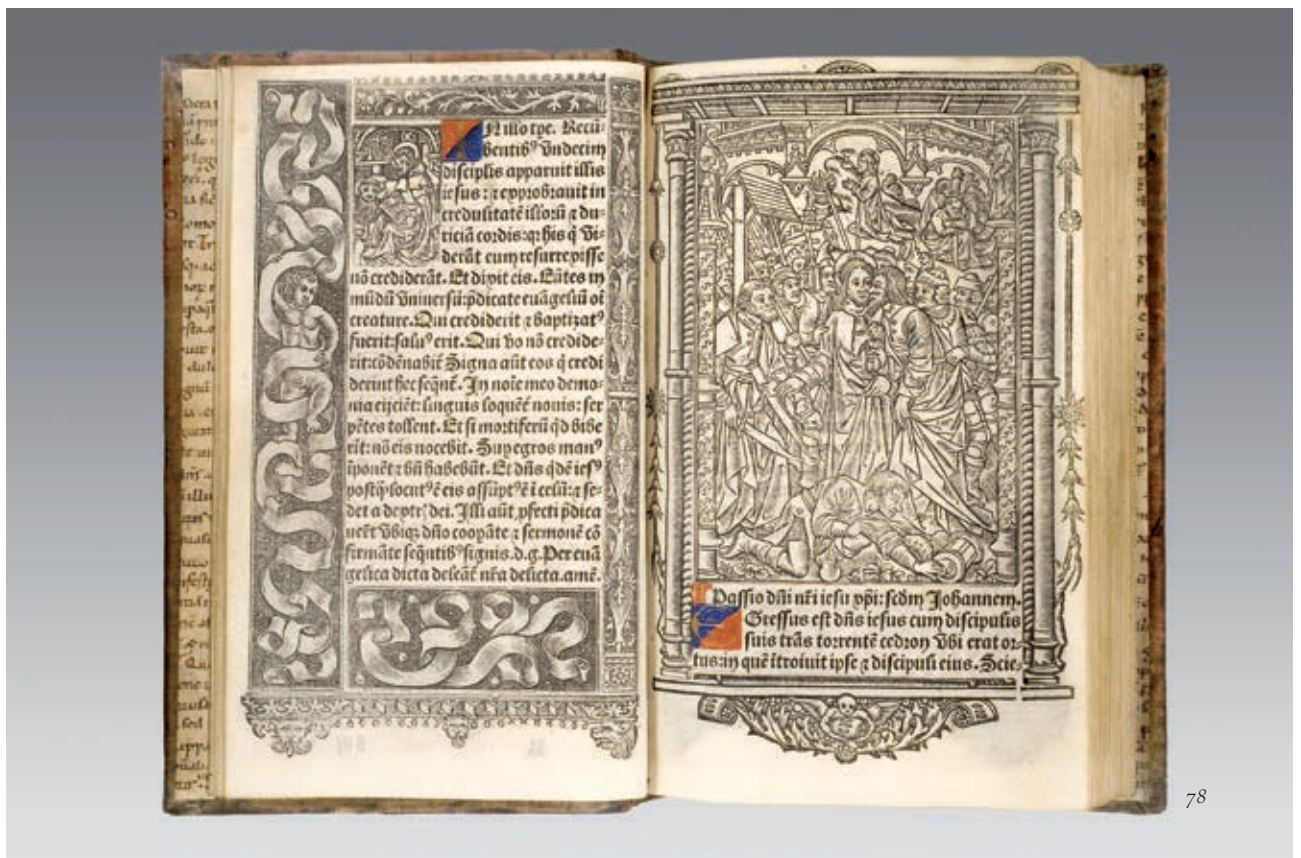 N illo tpe. Recū-
bentib⁹ vndecim
disciplis apparuit illis
iesus: ⁊ exprobrauit in
credulitatē illorū ⁊ du-
riciā cordis: qꝛ his q̄ vi-
derāt eum resurrexisse
nō crediderāt. Et dixit eis. Eūtes in
mūdū vniuersū: p̄dicate euāgeliū oī
creature. Qui crediderit ⁊ baptizat⁹
fuerit: salu⁹ erit. Qui v̄o nō credide-
rit: cōdēnabit̄ Signa aūt eos q̄ credi
derint hec seqūnt̄. In noīe meo demo-
nia eijciēt: linguis loquēt̄ nouis: ser
pētes tollent. Et si mortiferū qd̄ bibe
rīt: nō eis nocebit. Sup egros man⁹
īponēt ⁊ bn̄ habebūt. Et dn̄s qdē ies⁹
postq̄ locut⁹ ē eis assūpt⁹ ē ī celū: ⁊ se-
det a dextr̄ dei. Illi aūt ꝓfecti p̄dica
uerūt vbiqꝫ dn̄o coopāte ⁊ sermonē cō
firmāte seqūtib⁹ signis. d. g. Per euā
gelica dicta deleāt̄ nr̄a delicta. amē.
Passio dn̄i nr̄i iesu xp̄i: scd̄m Johannem.
Gressus est dn̄s iesus cum discipulis
suis trās torrentē cedron vbi erat or-
tus: in quē ītroiuit ipse ⁊ discipuli eius. Scie-
78